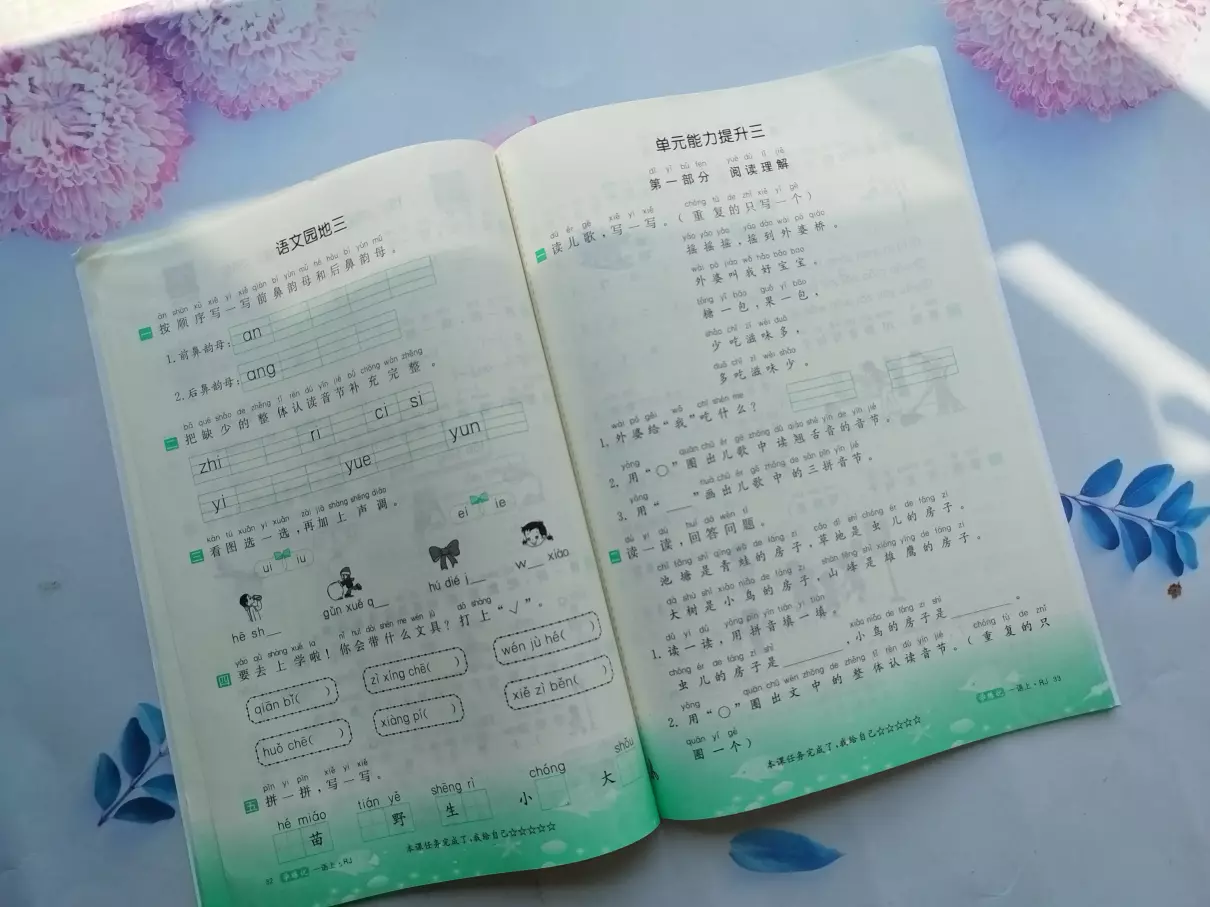 语文园地三
àn shùn xù xiě yi xiě qián bí yùn mǔ hé hòu bí yùn mǔ
一 按顺序写一写前鼻韵母和后鼻韵母。
1.前鼻韵母: an
2.后鼻韵母: ang
bǎ quē shǎo de zhěng tǐ rèn dú yīn jié bǔ chōng wán zhěng
二 把缺少的整体认读音节补充完整。
zhi ri ci si
yi yue yun
kàn tú xuǎn yi xuǎn zài jiā shàng shēng diào
三 看图选一选,再加上声调。
ui iu ei ie
hē sh__ gǔn xuě q__ hú dié j__ w__ xiào
yào qù shàng xué la nǐ huì dài shén me wén jù dǎ shàng
四 要去上学啦!你会带什么文具?打上“√”。
qiān bǐ( ) zì xíng chē( ) wén jù hé( )
huǒ chē( ) xiàng pí( ) xiě zì běn( )
pīn yi pīn xiě yi xiě
五 拼一拼,写一写。
hé miáo tián yě shēng rì chóng shǒu
苗 野 生 小 大
本课任务完成了,我给自己☆☆☆☆☆
52 一语上·RJ
单元能力提升三
dì yī bù fen yuè dú lǐ jiě
第一部分 阅读理解
dú ér gē xiě yi xiě chóng fù de zhǐ xiě yí gè
一 读儿歌,写一写。(重复的只写一个)
yáo yáo yáo yáo dào wài pó qiáo
摇摇摇,摇到外婆桥。
wài pó jiào wǒ hǎo bǎo bao
外婆叫我好宝宝。
táng yì bāo guǒ yì bāo
糖一包,果一包,
shǎo chī zī wèi duō
少吃滋味多,
duō chī zī wèi shǎo
多吃滋味少。
wài pó gěi wǒ chī shén me
1.外婆给“我”吃什么?
yòng quān chū ér gē zhōng dú qiào shé yīn de yīn jié
2.用“○”圈出儿歌中读翘舌音的音节。
yòng huà chū ér gē zhōng de sān pīn yīn jié
3.用“__”画出儿歌中的三拼音节。
dú yi dú huí dá wèn tí
二 读一读,回答问题。
chí táng shì qīng wā de fáng zi cǎo dì shì chóng ér de fáng zi
池塘是青蛙的房子,草地是虫儿的房子。
dà shù shì xiǎo niǎo de fáng zi shān fēng shì xióng yīng de fáng zi
大树是小鸟的房子,山峰是雄鹰的房子。
dú yi dú yòng pīn yīn tián yi tián
1.读一读,用拼音填一填。
chóng ér de fáng zi shì xiǎo niǎo de fáng zi shì
虫儿的房子是____,小鸟的房子是____。
yòng quān chū wén zhōng de zhěng tǐ rèn dú yīn jié chóng fù de zhǐ
2.用“○”圈出文中的整体认读音节。(重复的只
quān yí gè
圈一个)
本课任务完成了,我给自己☆☆☆☆☆
一语上·RJ 53